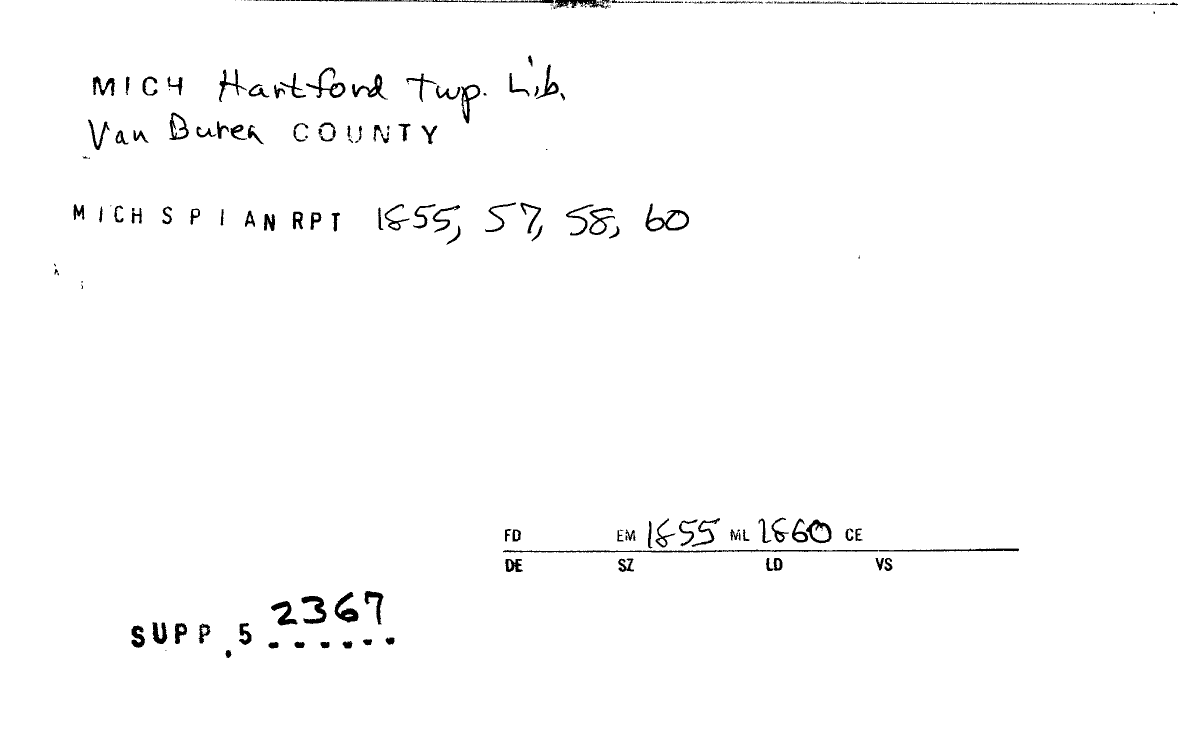 MICH Hartford Twp. Lib.
Van Buren COUNTY
MICH S P I AN RPT 1855, 57, 58, 60
FD EM 1855 ML 1860 CE
DE SZ LD VS
2367
SUPP .5 ......